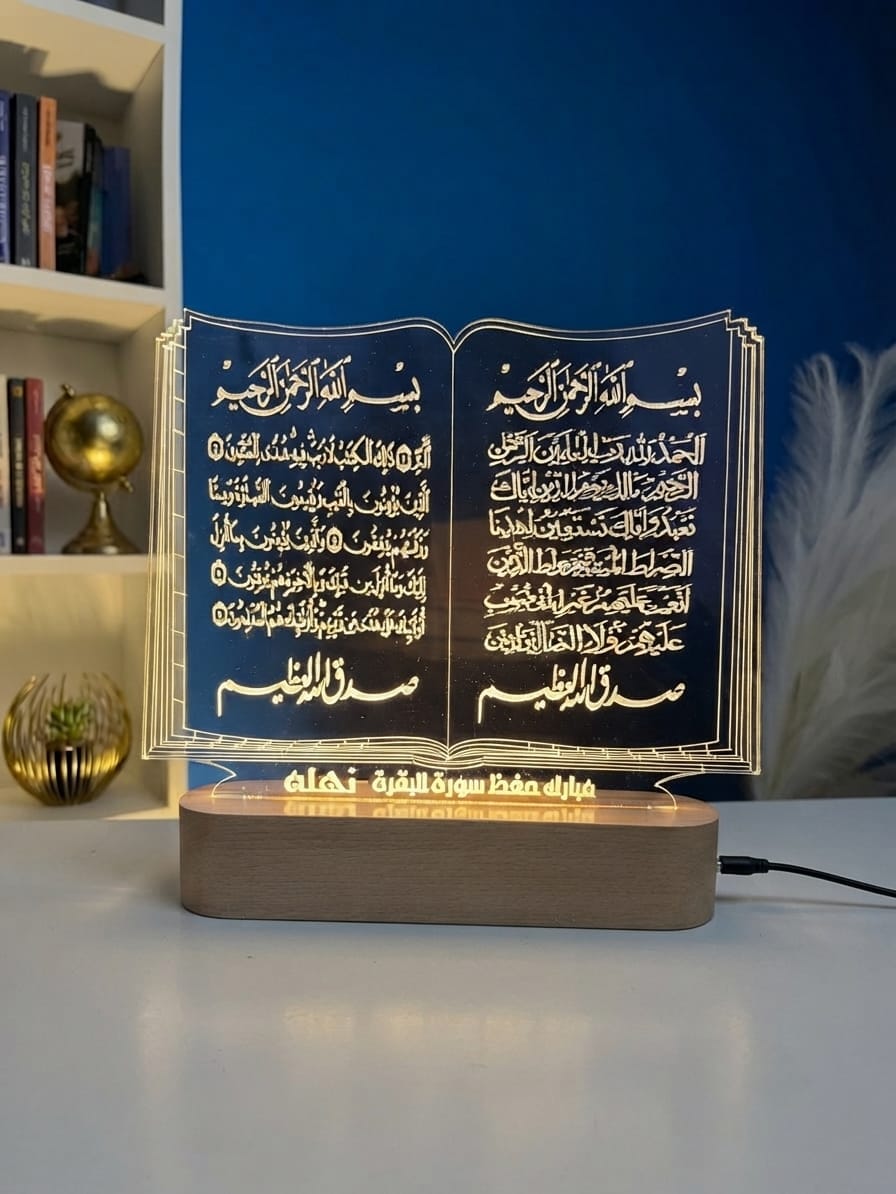 بسم الله الرحمن الرحيم
الحمد لله رب العالمين الرحمن
الرحيم مالك يوم الدين إياك
نعبد وإياك نستعين اهدنا
الصراط المستقيم صراط الذين
أنعمت عليهم غير المغضوب
عليهم ولا الضالين
صدق الله العظيم
بسم الله الرحمن الرحيم
الم ذلك الكتب لا ريب فيه هدى للمتقين
الذين يؤمنون بالغيب ويقيمون الصلوة ومما
رزقنهم ينفقون والذين يؤمنون بما أنزل
إليك وما أنزل من قبلك وبالآخرة هم يوقنون
أولئك على هدى من ربهم وأولئك هم المفلحون
صدق الله العظيم
مبارك حفظ سورة البقرة نهله